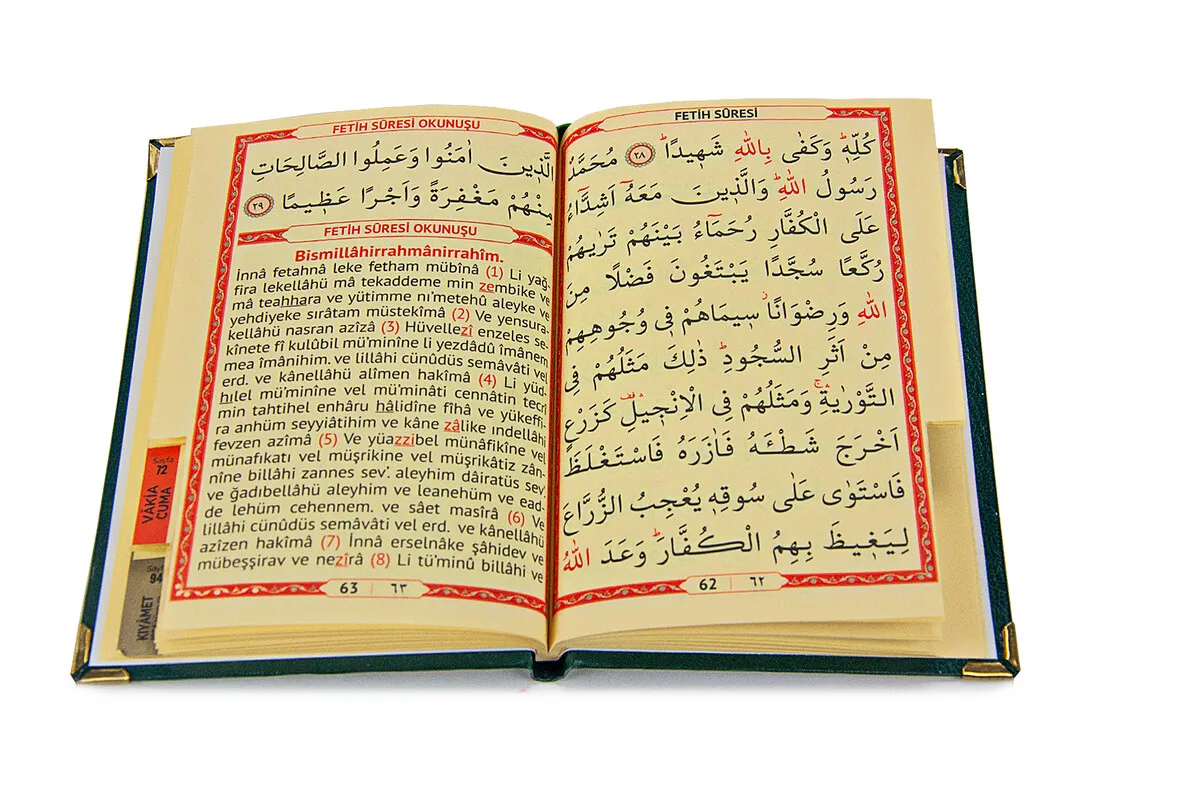 FETİH SÛRESİ
كُلِّه۪ۜ وَكَفٰى بِاللّٰهِ شَه۪يدًاۜ ﴿٢٨﴾ مُحَمَّدٌ
رَسُولُ اللّٰهِۜ وَالَّذ۪ينَ مَعَهُٓ اَشِدَّٓاءُ
عَلَى الْكُفَّارِ رُحَمَٓاءُ بَيْنَهُمْ تَرٰيهُمْ
رُكَّعًا سُجَّدًا يَبْتَغُونَ فَضْلًا مِنَ
اللّٰهِ وَرِضْوَانًاۘ س۪يمَاهُمْ ف۪ي وُجُوهِهِمْ
مِنْ اَثَرِ السُّجُودِۜ ذٰلِكَ مَثَلُهُمْ فِي
التَّوْرٰيةِۚ وَمَثَلُهُمْ فِي الْاِنْج۪يلِ۠ كَزَرْعٍ
اَخْرَجَ شَطْـَٔهُ فَاٰزَرَهُ فَاسْتَغْلَظَ
فَاسْتَوٰى عَلٰى سُوقِه۪ يُعْجِبُ الزُّرَّاعَ
لِيَغ۪يظَ بِهِمُ الْكُفَّارَۜ وَعَدَ اللّٰهُ
62 | ٦٢
FETİH SÛRESİ OKUNUŞU
الَّذ۪ينَ اٰمَنُوا وَعَمِلُوا الصَّالِحَاتِ
مِنْهُمْ مَغْفِرَةً وَاَجْرًا عَظ۪يمًا ﴿٢٩﴾
FETİH SÛRESİ OKUNUŞU
Bismillâhirrahmânirrahîm.
İnnâ fetahnâ leke fetham mübînâ (1) Li yağ-
fira lekellâhü mâ tekaddeme min zembike ve
mâ teahhara ve yütimme nı'metehû aleyke ve
yehdiyeke sırâtam müstekîmâ (2) Ve yensura-
kellâhü nasran azîzâ (3) Hüvellezî enzeles se-
kînete fî kulûbil mü'minîne li yezdâdû îmânem
mea îmânihim. ve lillâhi cünûdüs semâvâti vel
erd. ve kânellâhü alîmen hakîmâ (4) Li yüd-
hılel mü'minîne vel mü'minâti cennâtin tecrî
min tahtihel enhâru hâlidîne fîhâ ve yükeffi-
ra anhüm seyyiâtihim ve kâne zâlike ındellâhi
fevzen azîmâ (5) Ve yüazzibel münâfikîne vel
münafıkati vel müşrikine vel müşrikâtiz zân-
nîne billâhi zannes sev'. aleyhim dâiratüs sev'
ve ğadıbellâhü aleyhim ve leanehüm ve ead-
de lehüm cehennem. ve sâet masîrâ (6) Ve
lillâhi cünûdüs semâvâti vel erd. ve kânellâhü
azîzen hakîmâ (7) İnnâ erselnâke şâhidev ve
mübeşşirav ve nezîrâ (8) Li tü'minû billâhi ve
63 | ٦٣
Sayfa
72
VÂKIA
CUMA
Sayfa
94
KIYÂMET